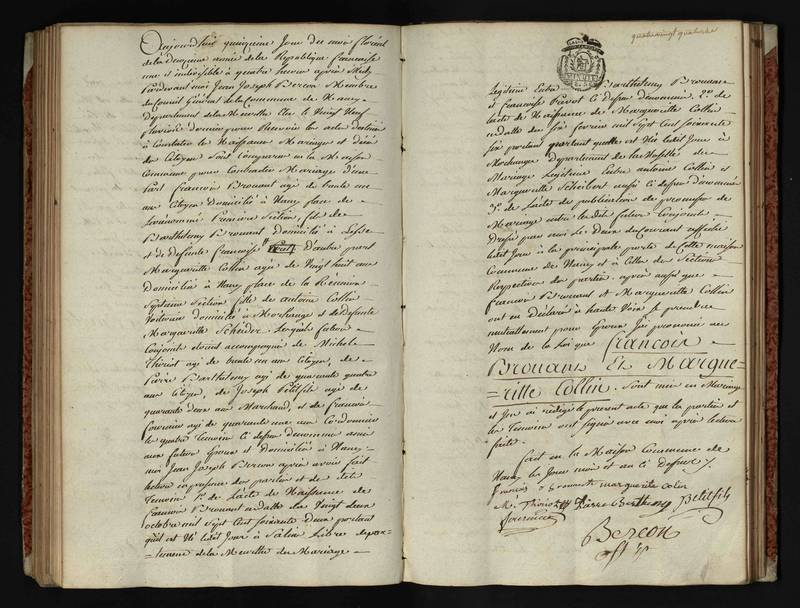 Aujourd'huit quinzieme Jour du mois floreal
de la deuxieme année de la Republique francaise
une et indivisible à quatre heures après Midy
Pardevant moi Jean Joseph Bercon Membre
du Conseil Général de la Commune de Nancy
Departement de la Meurthe Elu le Vingt Neuf
pour Recevoir les actes destinés
à Constater les Naissances Mariages et Décès
des Citoyens Sont Comparus en la Maison
Commune pour Contracter Mariage d'une
part francois Brouant agé de trente un
ans Citoyen Domicilié à Nancy place de
Première Section, fils de
Barthelemy Brouant domicilié à
et de defunte francoise D'autre part
Marguerite Collin agée de Vingt huit ans
Domiciliée à Nancy place de la Réunion
Septieme Section fille de antoine Collin
domicilié à Morhange et de defunte
Marguerite Lesquels futurs
Conjoints étoient accompagnés de Michel
Thiriot agé de trente un ans Citoyen, de
Pierre Barthelemy agé de quarante quatre
ans Citoyen, de Joseph Petitfils agé de
quarante deux ans Marchand, et de francois
agé de quarante un ans Cordonnier
les quatre Temoins Ci dessus denommés amis
aux futurs Epoux et domiciliés à Nancy
moi Jean Joseph Bercon après avoir fait
lecture en presence des parties et des dits
Temoins 1°. de L'acte de Naissance de
francois Brouant en datte du Vingt deux
octobre mil Sept Cent Soixante deux portant
quil est Né ledit Jour à Salin Libre depar=
=tement de la Meurthe du Mariage
quatrevingt quatorze
Legitime Entre Barthelemy Brouant
et francoise Ci dessus denommés 2°. de
l'acte de Naissance de Marguerite Collin
en datte du Six fevrier mil Sept Cent Soixante
Six portant quelle est Née ledit Jour à
Morhange Departement de la Moselle du
Mariage Legitime Entre antoine Collin et
Marguerite aussi Ci dessus denommés
3°. de L'acte de publication de promesse de
Mariage entre les dits futurs Conjoints
Dressé par moi le Douze du Courant affiché
ledit Jour à la principale porte de Cette maison
Commune de Nancy et à Celles des Sections
Respectives des parties. après aussi que
francois Brouant et Marguerite Collin
ont eu Déclaré à haute Voix Se prendre
mutuellement pour Epoux j'ai prononcé au
Nom de la Loi que francois
Brouant Et Margue=
=ritte Collin. Sont unis en Mariage
et j'en ai rédigé le présent acte que les parties et
les Temoins ont Signés avec moi après lecture
faite.
fait en la Maison Commune de
Nancy les Jour mois et an Ci dessus
francois marguerite colin
M. Thiriot Pierre Barthelemy Petitfils
Bercon